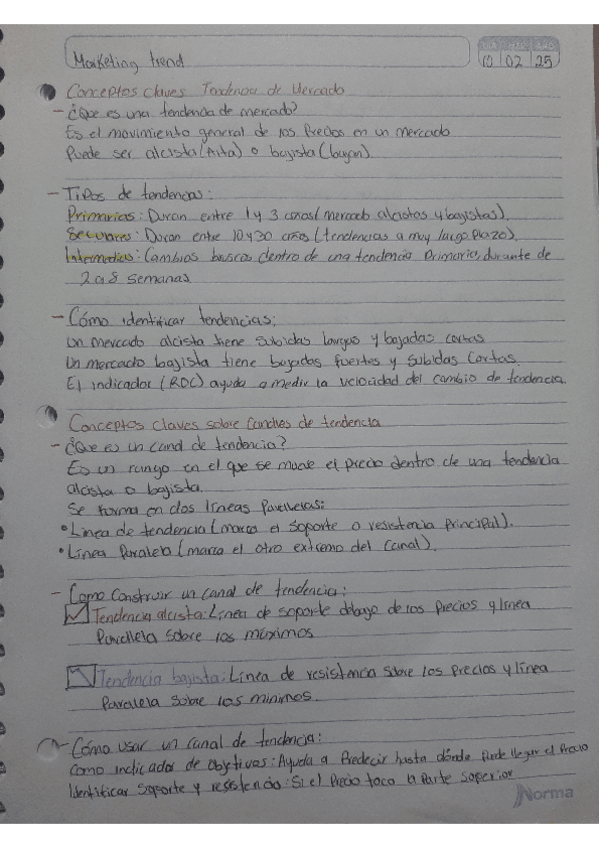 Marketing trend
10 02 25
Conceptos claves Tendencia de Mercado
- ¿Que es una tendencia de mercado?
Es el movimiento general de los Precios en un mercado
Puede ser alcista (Alta) o bajista (bajan)
- Tipos de tendencias:
Primarias: Duran entre 1 y 3 años (mercado alcistas y bajistas).
Seculares: Duran entre 10 y 30 años (tendencias a muy largo plazo).
Intermedias: Cambios buscos dentro de una tendencia Primaria, durante de
2 a 8 semanas.
- Cómo identificar tendencias:
Un mercado alcista tiene subidas largas y bajadas cortas
Un mercado bajista tiene bajadas fuertes y subidas Cortas.
El indicador (RDC) ayuda a medir la velocidad del cambio de tendencia.
Conceptos claves sobre Canales de tendencia
- ¿Que es un canal de tendencia?
Es un rango en el que se mueve el precio dentro de una tendencia
alcista o bajista.
Se forma en dos líneas Paralelas:
• Línea de tendencia (marca el soporte o resistencia principal).
• Línea Paralela (marca el otro extremo del Canal).
- Como Construir un canal de tendencia:
Tendencia alcista: Línea de soporte debajo de los Precios y línea
Paralela sobre los máximos
Tendencia bajista: Línea de resistencia sobre los precios y línea
Paralela sobre los mínimos.
- Cómo usar un canal de tendencia:
Como indicador de Objetivos: Ayuda a Predecir hasta dónde Puede llegar el Precio
Identificar Soporte y resistencia: Si el Precio toca la Parte superior
Norma